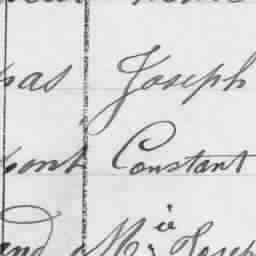 pas Joseph
pont Constant
and Mie Joseph